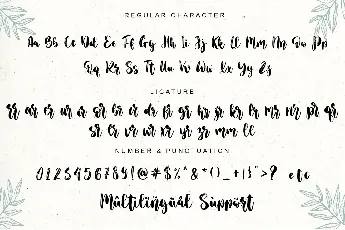 REGULAR CHARACTER
Aa Bb Cc Dd Ee Ff Gg Hh Ii Jj Kk Ll Mm Nn Oo Pp
Qq Rr Ss Tt Uu Vv Ww Xx Yy Zz
LIGATURE
er ir or br cr dr fr gr hr jr kr lr mr nr pr qr
sr tr vr wr xr yr zr mm ll
NUMBER & PUNCTUATION
0123456789!@#$%^&*()_+{}">? etc
Multilingual Support